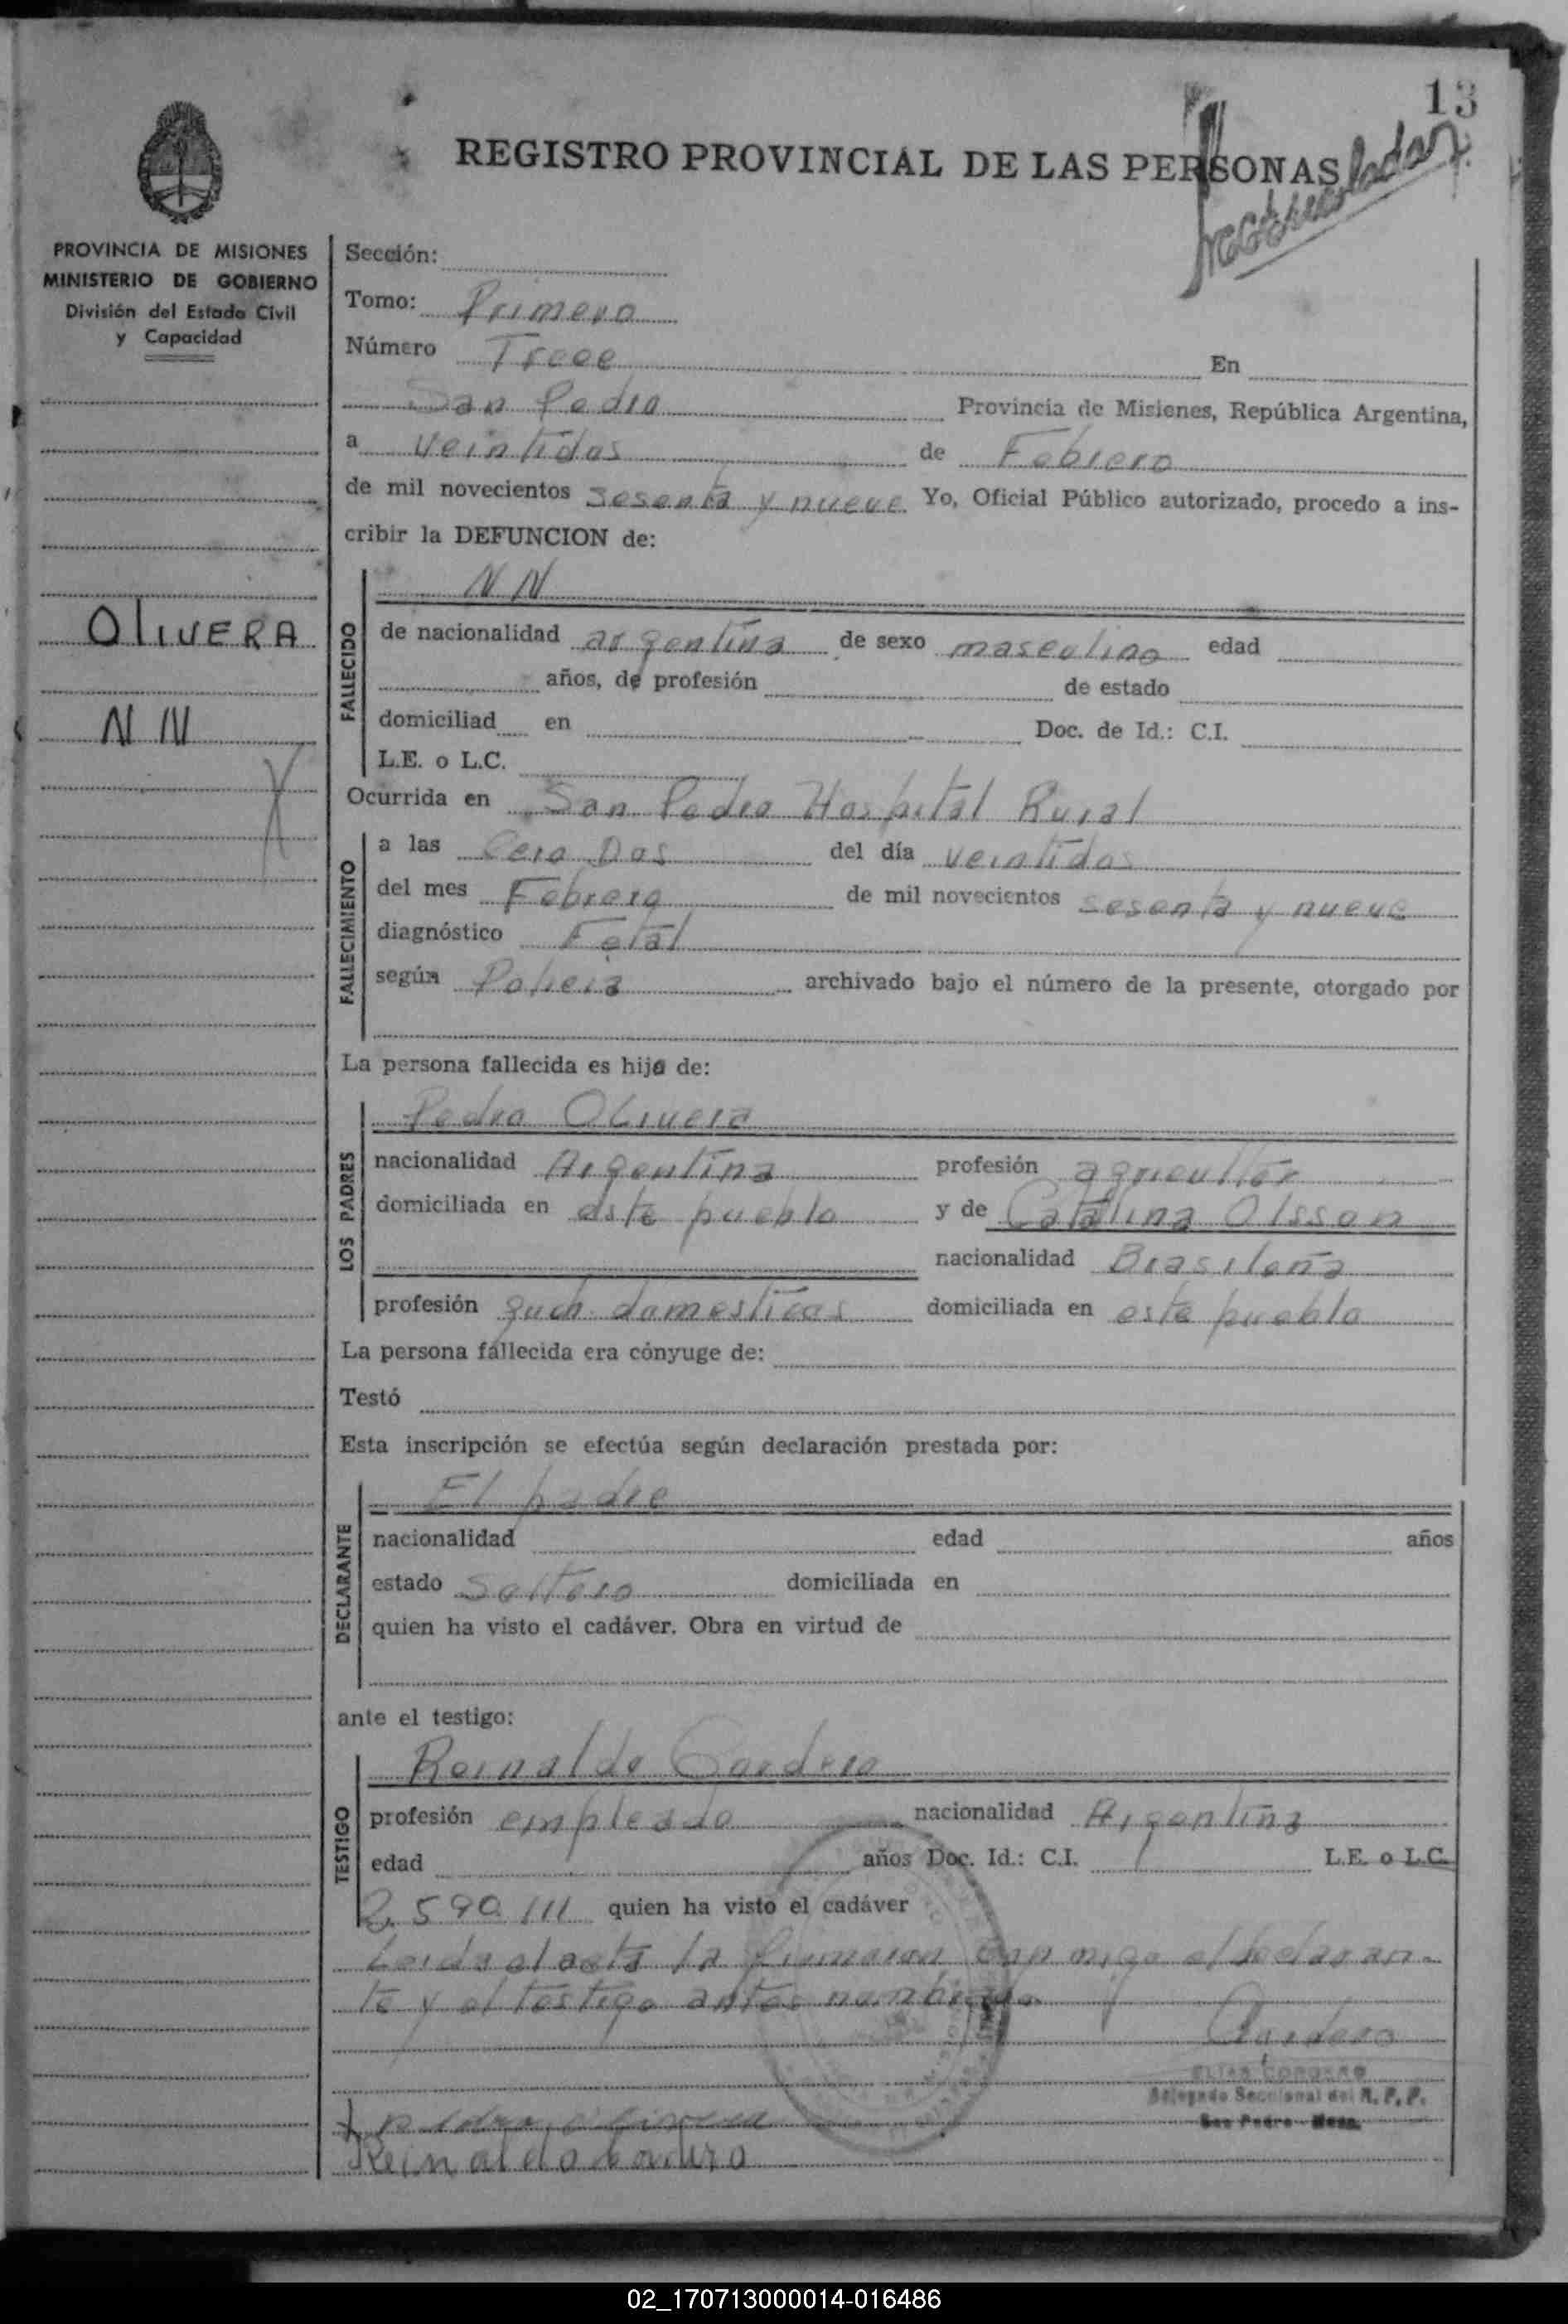 13
REGISTRO PROVINCIAL DE LAS PERSONAS
PROVINCIA DE MISIONES
MINISTERIO DE GOBIERNO
División del Estado Civil
y Capacidad
OLIVERA
N N
Sección:
Tomo: Primero
Número Trece En
San Pedro Provincia de Misiones, República Argentina,
a veintidos de Febrero
de mil novecientos sesenta y nueve Yo, Oficial Público autorizado, procedo a ins-
cribir la DEFUNCION de:
FALLECIDO
N N
de nacionalidad argentina de sexo masculino edad
años, de profesión de estado
domiciliad en Doc. de Id.: C.I.
L.E. o L.C.
Ocurrida en San Pedro Hospital Rural
FALLECIMIENTO
a las Cero Dos del día veintidos
del mes Febrero de mil novecientos sesenta y nueve
diagnóstico Fetal
según Policia archivado bajo el número de la presente, otorgado por
La persona fallecida es hijo de:
LOS PADRES
Pedro Olivera
nacionalidad Argentina profesión agricultor
domiciliada en este pueblo y de Catalina Olsson
nacionalidad Brasileña
profesión queh. domesticos domiciliada en este pueblo
La persona fallecida era cónyuge de:
Testó
Esta inscripción se efectúa según declaración prestada por:
DECLARANTE
El padre
nacionalidad edad años
estado Soltero domiciliada en
quien ha visto el cadáver. Obra en virtud de
ante el testigo:
TESTIGO
Reinaldo Cordero
profesión empleado nacionalidad Argentina
edad años Doc. Id.: C.I. L.E. o L.C.
2.590.111 quien ha visto el cadáver
Leida el acta la firmaron conmigo el declaran-
te y el testigo antes nombrado
Cordero
ELIAS CORDERO
Delegado Seccional del R. P. P.
San Pedro - Mnes.
Pedro Olivera
Reinaldo Cordero
02_170713000014-016486